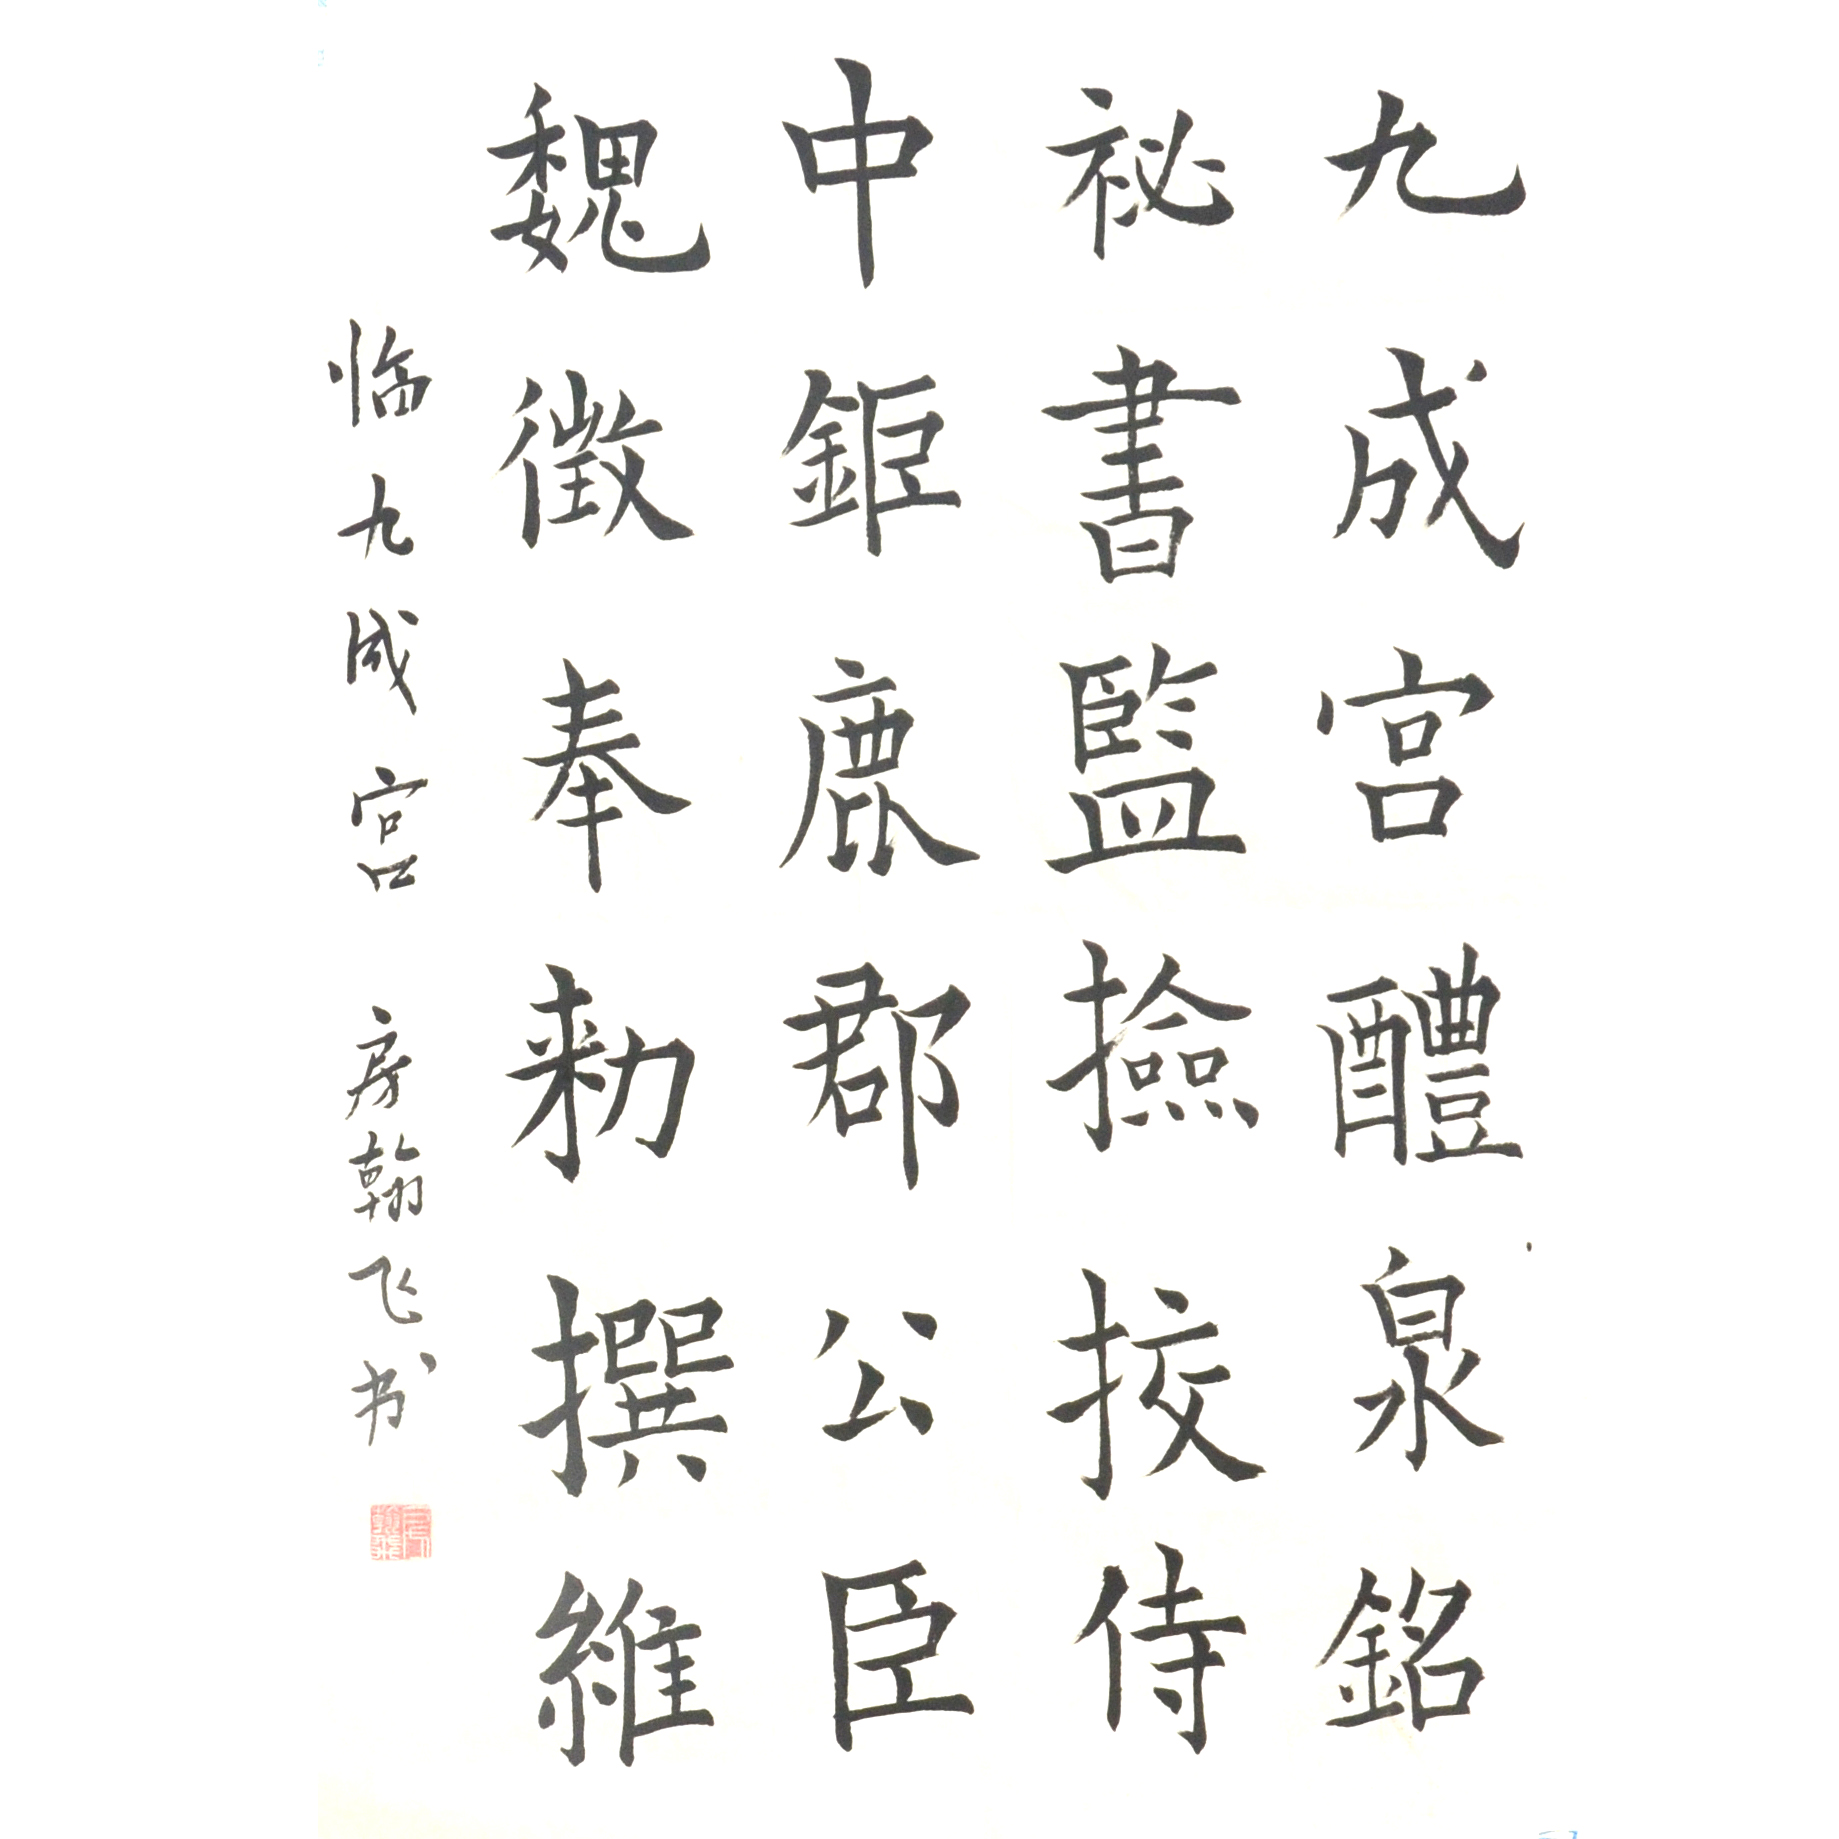 九成宫醴泉銘
祕書監撿挍侍
中鉅鹿郡公臣
魏徵奉勑撰維
临九成宫 房翰飞书